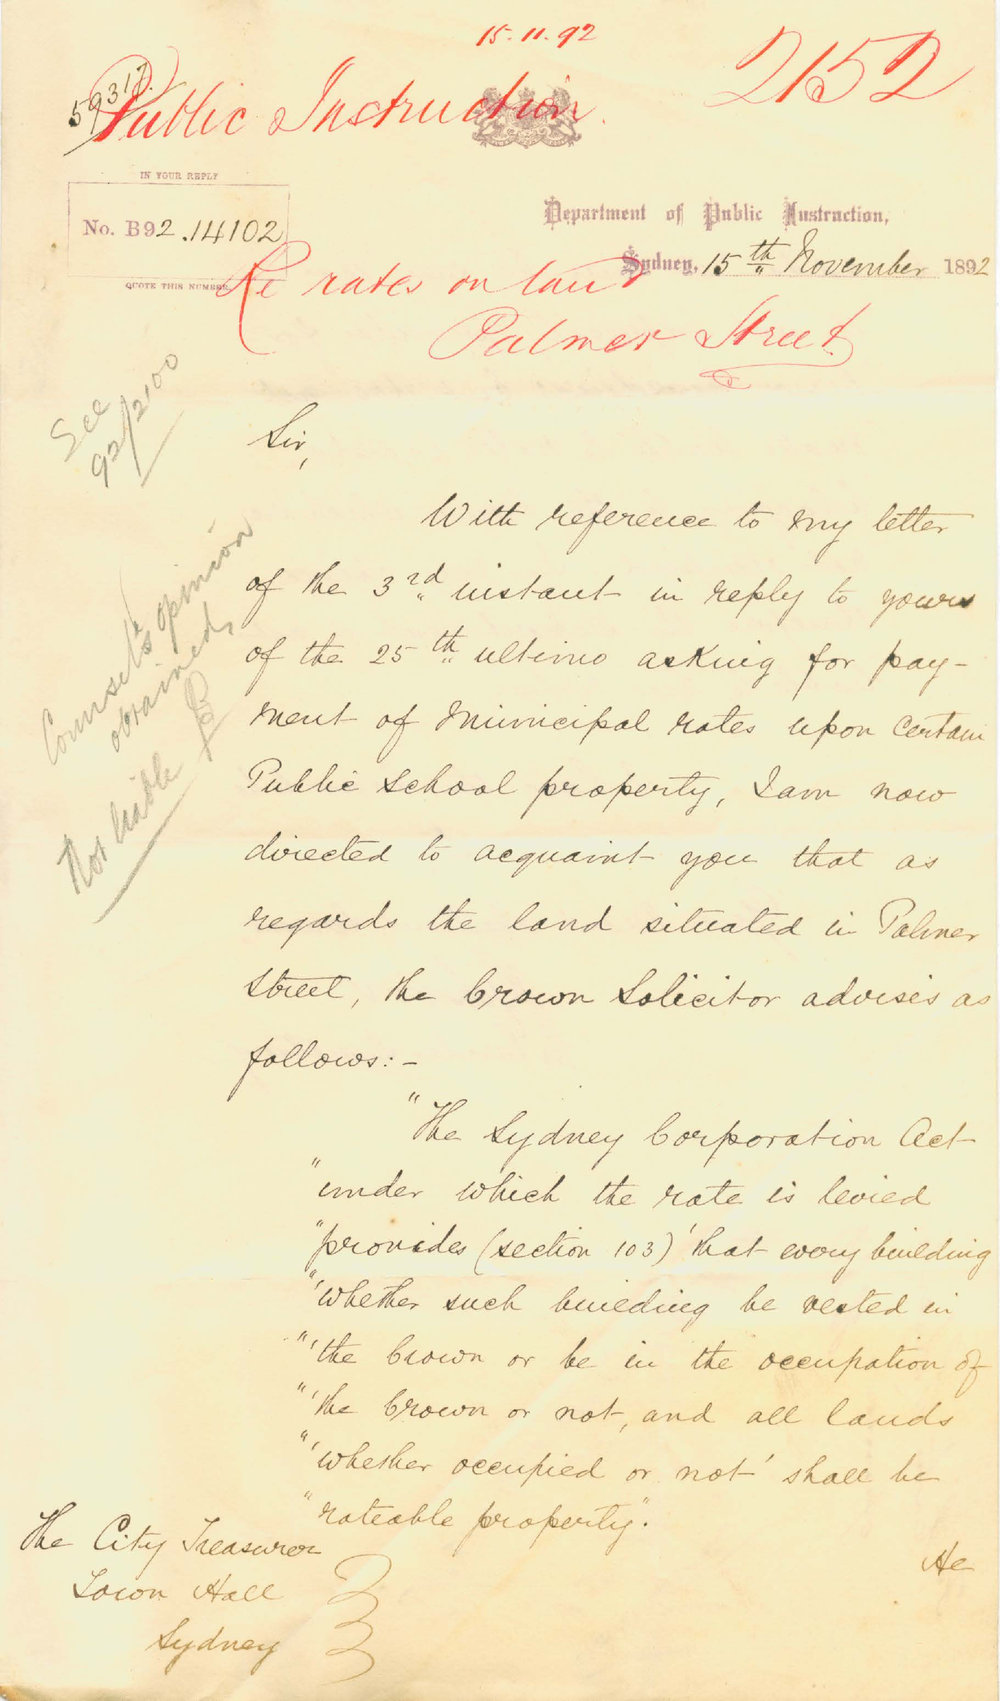 15.11.92
2152
59317.
Public Instruction.
IN YOUR REPLY
No. B92.14102
QUOTE THIS NUMBER
Department of Public Instruction,
Sydney, 15th November 1892
Re rates on land
Palmer Street
See
92/2100
Counsel's opinion
obtained,
Not liable
Sir,
With reference to my letter
of the 3rd instant in reply to yours
of the 25th ultimo asking for pay-
ment of Municipal rates upon certain
Public School property, I am now
directed to acquaint you that as
regards the land situated in Palmer
Street, the Crown Solicitor advises as
follows:-
"The Sydney Corporation Act
"under which the rate is levied
"provides (section 103) 'that every building
"'whether such building be vested in
"'the Crown or be in the occupation of
"'the Crown or not, and all lands
"'whether occupied or not' shall be
"rateable property".
He
The City Treasurer
Town Hall
Sydney